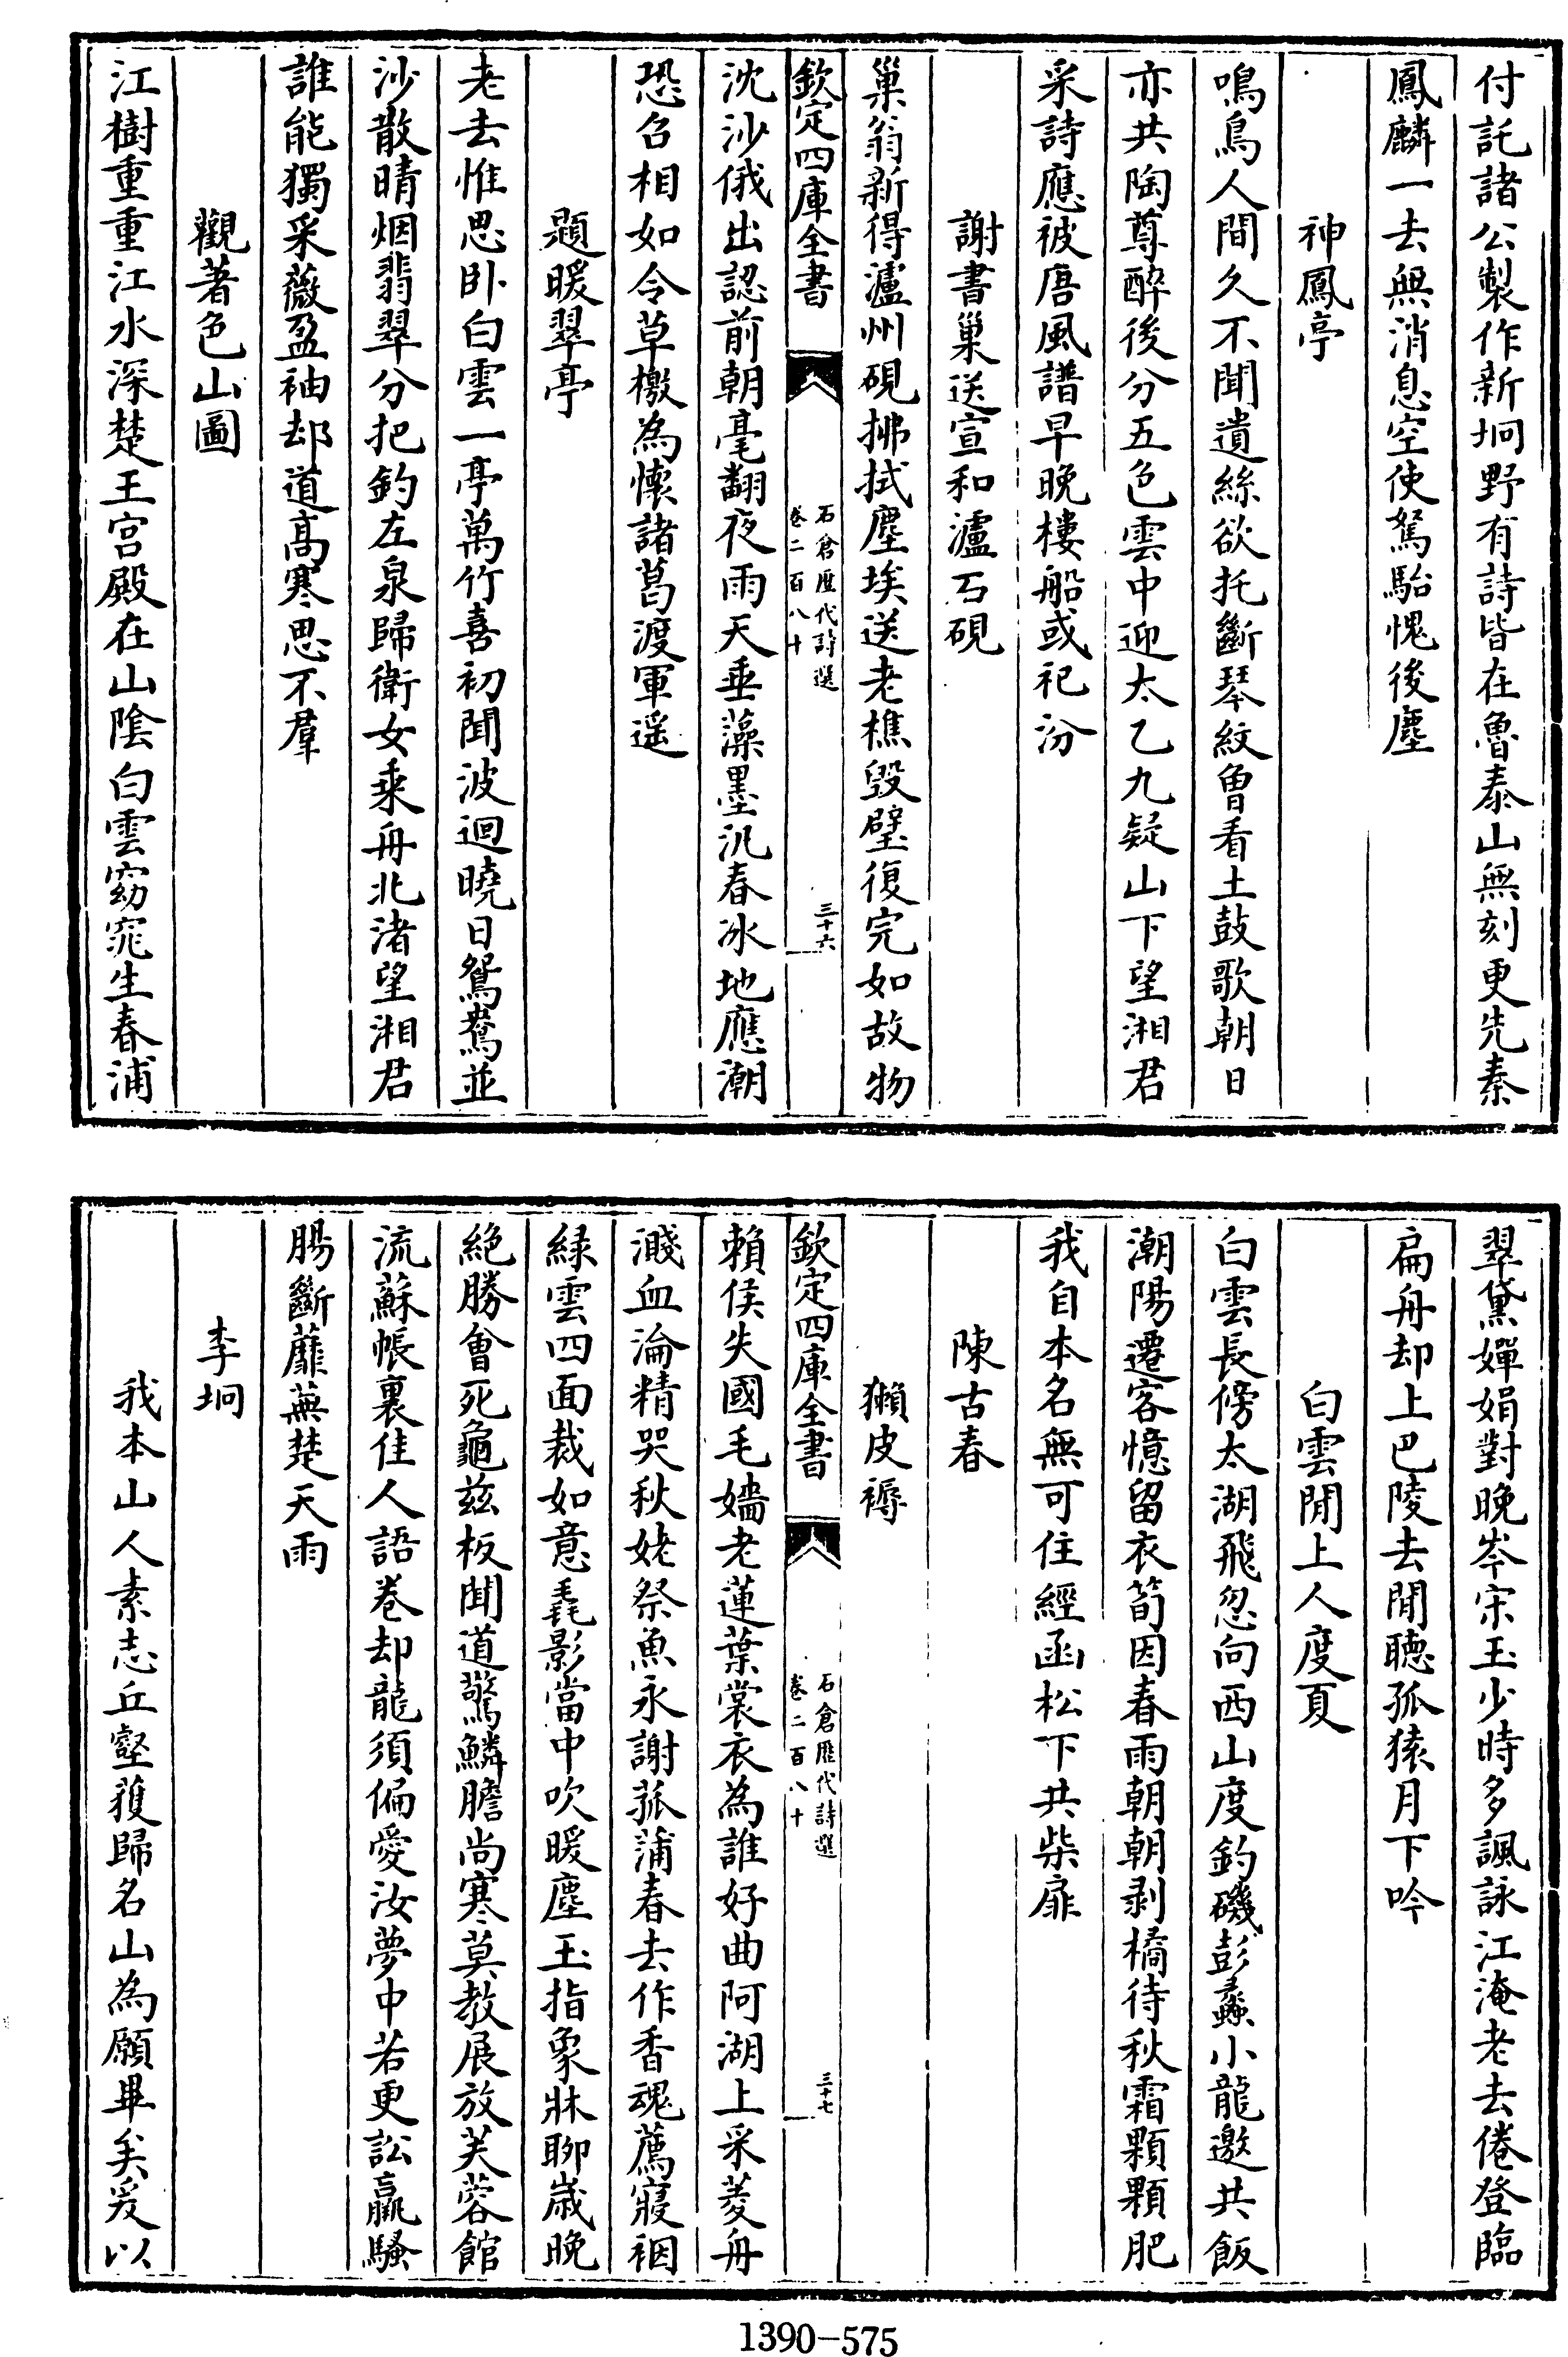 付託諸公製作新坰野有詩皆在魯泰山無刻更先秦
鳳麟一去無消息空使駑駘愧後塵
神鳳亭
鳴鳥人間久不聞遺絲欲托斷琴紋曾看土鼓歌朝日
亦共陶尊醉後分五色雲中迎太乙九疑山下望湘君
采詩應被唐風譜早晚樓船或祀汾
謝書巢送宣和瀘石硯
巢翁新得瀘州硯拂拭塵埃送老樵毀壁復完如故物
欽定四庫全書
石倉歷代詩選
卷二百八十
三十六
沈沙俄出認前朝毫翻夜雨天垂藻墨汎春冰地應潮
恐召相如令草檄為懷諸葛渡軍遥
題暖翠亭
老去惟思卧白雲一亭萬竹喜初聞波迴曉日鴛鴦並
沙散晴烟翡翠分把釣左泉歸衛女乘舟北渚望湘君
誰能獨采薇盈袖却道高寒思不羣
觀著色山圖
江樹重重江水深楚王宫殿在山陰白雲窈窕生春浦
翠黛嬋娟對晚岑宋玉少時多諷詠江淹老去倦登臨
扁舟却上巴陵去閒聽孤猿月下吟
白雲閒上人度夏
白雲長傍太湖飛忽向西山度釣磯彭蠡小龍邀共飯
潮陽遷客憶留衣筍因春雨朝朝剥橘待秋霜顆顆肥
我自本名無可住經函松下共柴扉
陳古春
獺皮褥
欽定四庫全書
石倉歷代詩選
卷二百八十
三十七
賴侯失國毛嬙老蓮葉裳衣為誰好曲阿湖上采菱舟
濺血淪精哭秋姥祭魚永謝菰蒲春去作香魂薦寢裀
緑雲四面裁如意毳影當中吹暖塵玉指象牀聊歲晚
絶勝會死龜兹板聞道驚鱗膽尚寒莫教展放芙蓉館
流蘇帳裏佳人語卷却龍須偏愛汝夢中若更訟羸騷
腸斷蘼蕪楚天雨
李坰
我本山人素志丘壑獲歸名山為願畢矣爰以
1390-575